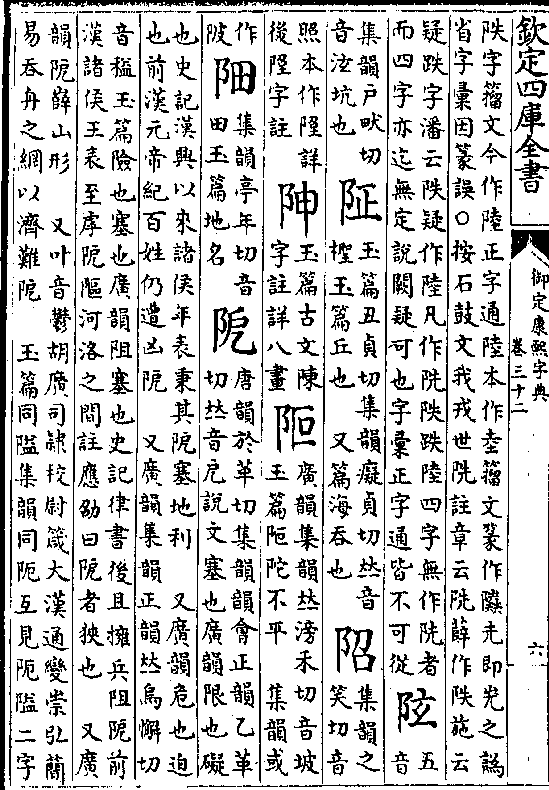 欽定四庫全書
御定康熙字典
卷三十二
六
陜字籀文今作陸正字通陸本作坴籀文篆作𨽰圥即光之譌
省字彙因篆誤○按石鼓文我戎世阠註章云阠薛作陜施云
疑跌字潘云陜疑作陸凡作阠陜跌陸四字無作阠者
而四字亦迄無定說闕疑可也字彙正字通皆不可從
陭 五音
集韻戶畎切
音泫坑也
阷 玉篇丑貞切集韻癡貞切𠀤音
檉玉篇丘也 又篇海吞也
阳 集韻之
笑切音
照本作𨹸詳
後𨹸字註
陣 玉篇古文陳
字註詳八畫
陊 廣韻集韻𠀤滂禾切音坡
玉篇陊陀不平 集韻或
作
陂
畋 集韻亭年切音
田玉篇地名
阸 唐韻於革切集韻韻會正韻乙革
切𠀤音戹說文塞也廣韻限也礙
也史記漢興以來諸侯年表秉其阸塞地利 又廣韻危也迫
也前漢元帝紀百姓仍遭凶阸 又廣韻集韻正韻𠀤烏懈切
音搤玉篇險也塞也廣韻阻塞也史記律書後且擁兵阻阸前
漢諸侯王表至虖阸𨻲河洛之間註應劭曰阸者狹也 又廣
韻阸薜山形 又叶音鬱胡廣司隷校尉箴大漢通變崇弘簡
易吞舟之網以濟難阸 玉篇同隘集韻同阨互見阨隘二字